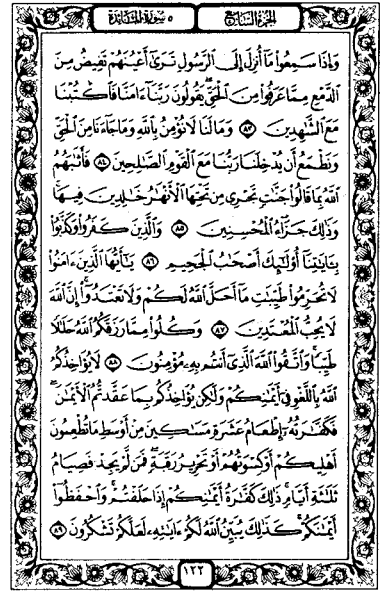 الجزء السابع ٥ سورة المائدة
وَإِذَا سَمِعُوا۟ مَآ أُنزِلَ إِلَى ٱلرَّسُولِ تَرَىٰٓ أَعْيُنَهُمْ تَفِيضُ مِنَ
ٱلدَّمْعِ مِمَّا عَرَفُوا۟ مِنَ ٱلْحَقِّ ۖ يَقُولُونَ رَبَّنَآ ءَامَنَّا فَٱكْتُبْنَا
مَعَ ٱلشَّٰهِدِينَ ٨٣ وَمَا لَنَا لَا نُؤْمِنُ بِٱللَّهِ وَمَا جَآءَنَا مِنَ ٱلْحَقِّ
وَنَطْمَعُ أَن يُدْخِلَنَا رَبُّنَا مَعَ ٱلْقَوْمِ ٱلصَّٰلِحِينَ ٨٤ فَأَثَٰبَهُمُ
ٱللَّهُ بِمَا قَالُوا۟ جَنَّٰتٍ تَجْرِى مِن تَحْتِهَا ٱلْأَنْهَٰرُ خَٰلِدِينَ فِيهَا ۚ
وَذَٰلِكَ جَزَآءُ ٱلْمُحْسِنِينَ ٨٥ وَٱلَّذِينَ كَفَرُوا۟ وَكَذَّبُوا۟
بِـَٔايَٰتِنَآ أُو۟لَٰٓئِكَ أَصْحَٰبُ ٱلْجَحِيمِ ٨٦ يَٰٓأَيُّهَا ٱلَّذِينَ ءَامَنُوا۟
لَا تُحَرِّمُوا۟ طَيِّبَٰتِ مَآ أَحَلَّ ٱللَّهُ لَكُمْ وَلَا تَعْتَدُوٓا۟ ۚ إِنَّ ٱللَّهَ
لَا يُحِبُّ ٱلْمُعْتَدِينَ ٨٧ وَكُلُوا۟ مِمَّا رَزَقَكُمُ ٱللَّهُ حَلَٰلًا
طَيِّبًا ۚ وَٱتَّقُوا۟ ٱللَّهَ ٱلَّذِىٓ أَنتُم بِهِۦ مُؤْمِنُونَ ٨٨ لَا يُؤَاخِذُكُمُ
ٱللَّهُ بِٱللَّغْوِ فِىٓ أَيْمَٰنِكُمْ وَلَٰكِن يُؤَاخِذُكُم بِمَا عَقَّدتُّمُ ٱلْأَيْمَٰنَ ۖ
فَكَفَّٰرَتُهُۥٓ إِطْعَامُ عَشَرَةِ مَسَٰكِينَ مِنْ أَوْسَطِ مَا تُطْعِمُونَ
أَهْلِيكُمْ أَوْ كِسْوَتُهُمْ أَوْ تَحْرِيرُ رَقَبَةٍ ۖ فَمَن لَّمْ يَجِدْ فَصِيَامُ
ثَلَٰثَةِ أَيَّامٍ ۚ ذَٰلِكَ كَفَّٰرَةُ أَيْمَٰنِكُمْ إِذَا حَلَفْتُمْ ۚ وَٱحْفَظُوٓا۟
أَيْمَٰنَكُمْ ۚ كَذَٰلِكَ يُبَيِّنُ ٱللَّهُ لَكُمْ ءَايَٰتِهِۦ لَعَلَّكُمْ تَشْكُرُونَ ٨٩
١٢٢